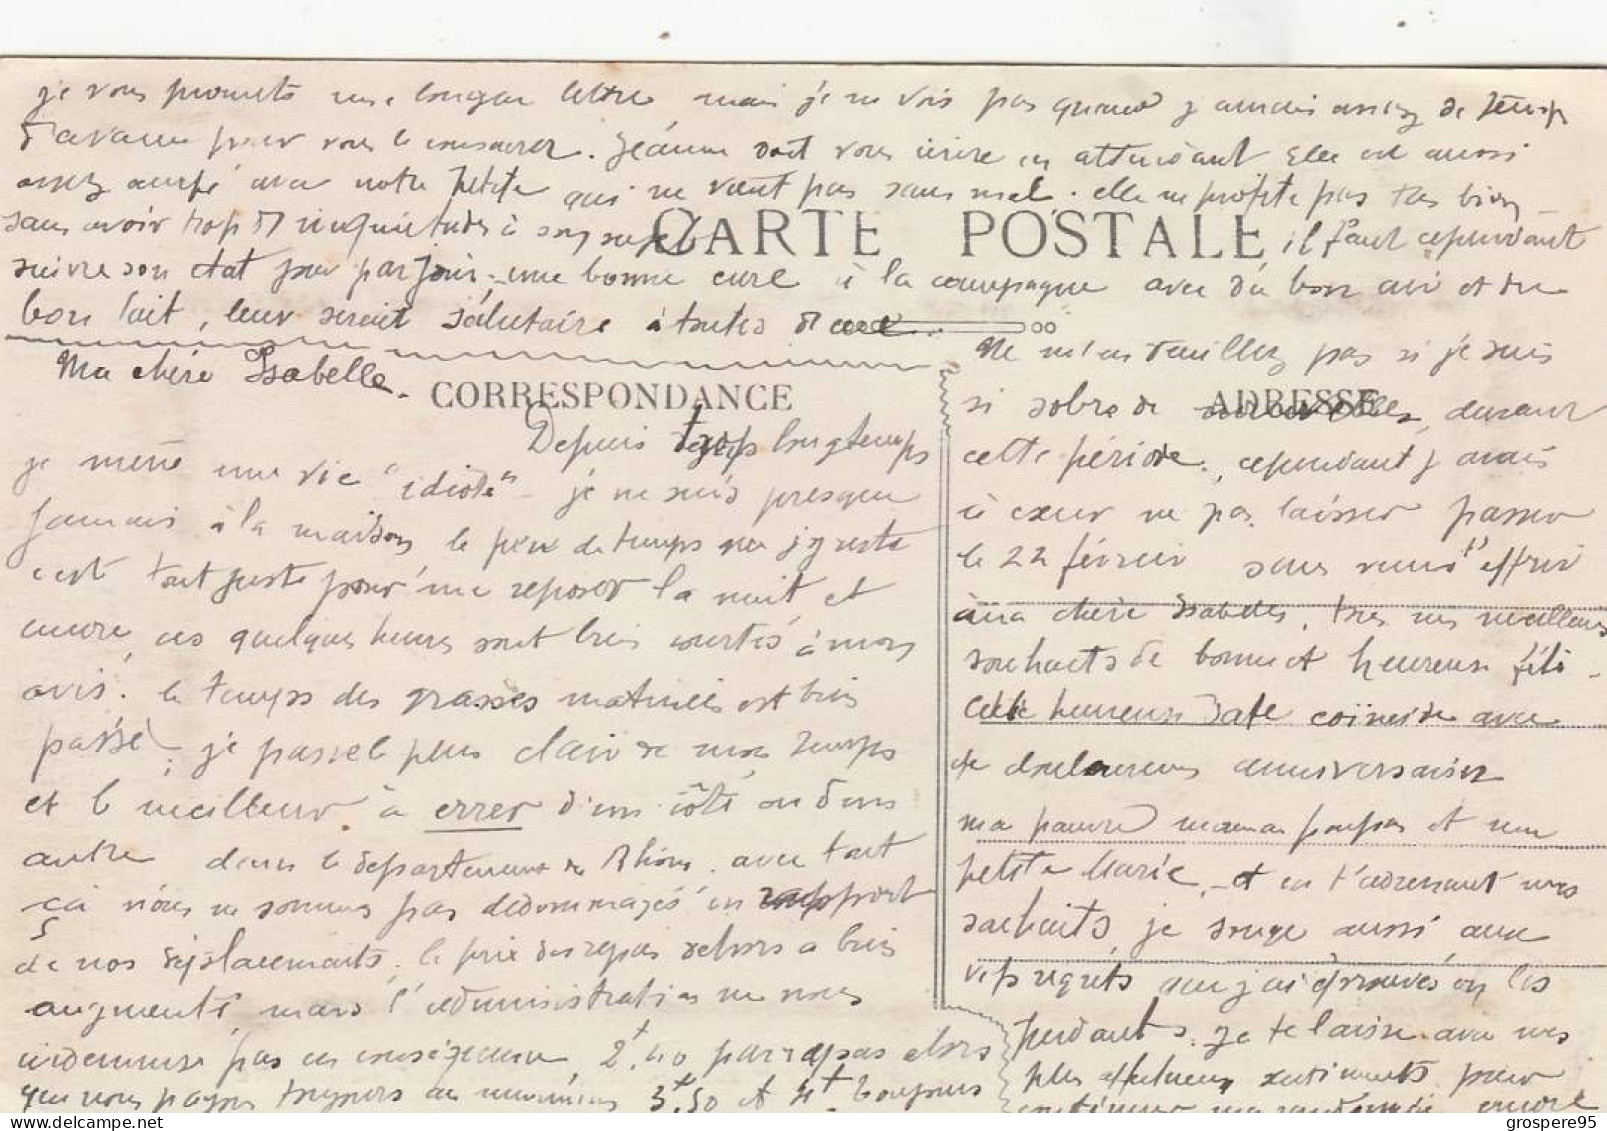 je vous promets une longue lettre mais je ne vois pas quand j aurais assez de temps
d'avance pour vous le consacrer. Jeanne doit vous écrire en attendant Elle est aussi
assez occupé avec notre petite qui ne vient pas sans mal. elle ne profite pas très bien
sans avoir trop d'inquiétudes à son sujet il faut cependant
CARTE POSTALE
suivre son état jour par jour, une bonne cure à la campagne avec du bon air et du
bon lait, leur serait salutaire à toutes deux.
Ma chère Isabelle.
CORRESPONDANCE
Depuis trop longtemps
je mène une vie "idiote" je ne suis presque
jamais à la maison le peu de temps que j'y reste
c'est tout juste pour me reposer la nuit et
encore, ces quelques heures sont bien courtes à mon
avis. le temps des grasses matinées est bien
passé; je passe le plus clair de mon temps
et le meilleur à errer d'un côté ou d'un
autre dans le département du Rhône. avec tout
ça nous ne sommes pas dédommagés en rapport
de nos déplacements. le prix des repas dehors a bien
augmenté, mais l'administration ne nous
indemnise pas en conséquence, 2f.40 par repas alors
que nous payons toujours au minimum 3f.50 et 4f toujours
Ne m'en veuillez pas si je suis
ADRESSE
si sobre de nouvelles, durant
cette période, cependant j avais
à cœur ne pas laisser passer
le 22 février sans venir t'offrir
à ma chère Isabelle, tous mes meilleurs
souhaits de bonne et heureuse fête.
Cette heureuse date coïncide avec
de douloureux anniversaires
ma pauvre maman et une
petite Marie, et en t'adressant mes
souhaits, je songe aussi aux
vifs regrets que j'ai éprouvés en les
perdants. Je te laisse avec mes
plus affectueux sentiments pour
continuer ma randonnée, encore
grospere95